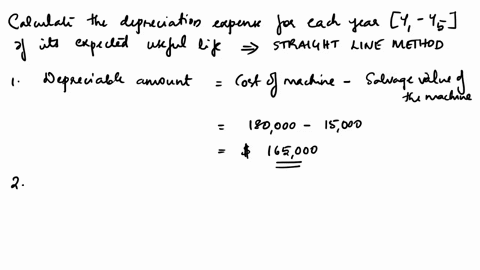 Calculate the depreciation expense for each year [Y₁ - Y₅]
of its expected useful life ⇒ STRAIGHT LINE METHOD
1. Depreciable amount = Cost of machine - Salvage value of
the machine
= 180,000 - 15,000
= $ 165,000
2.